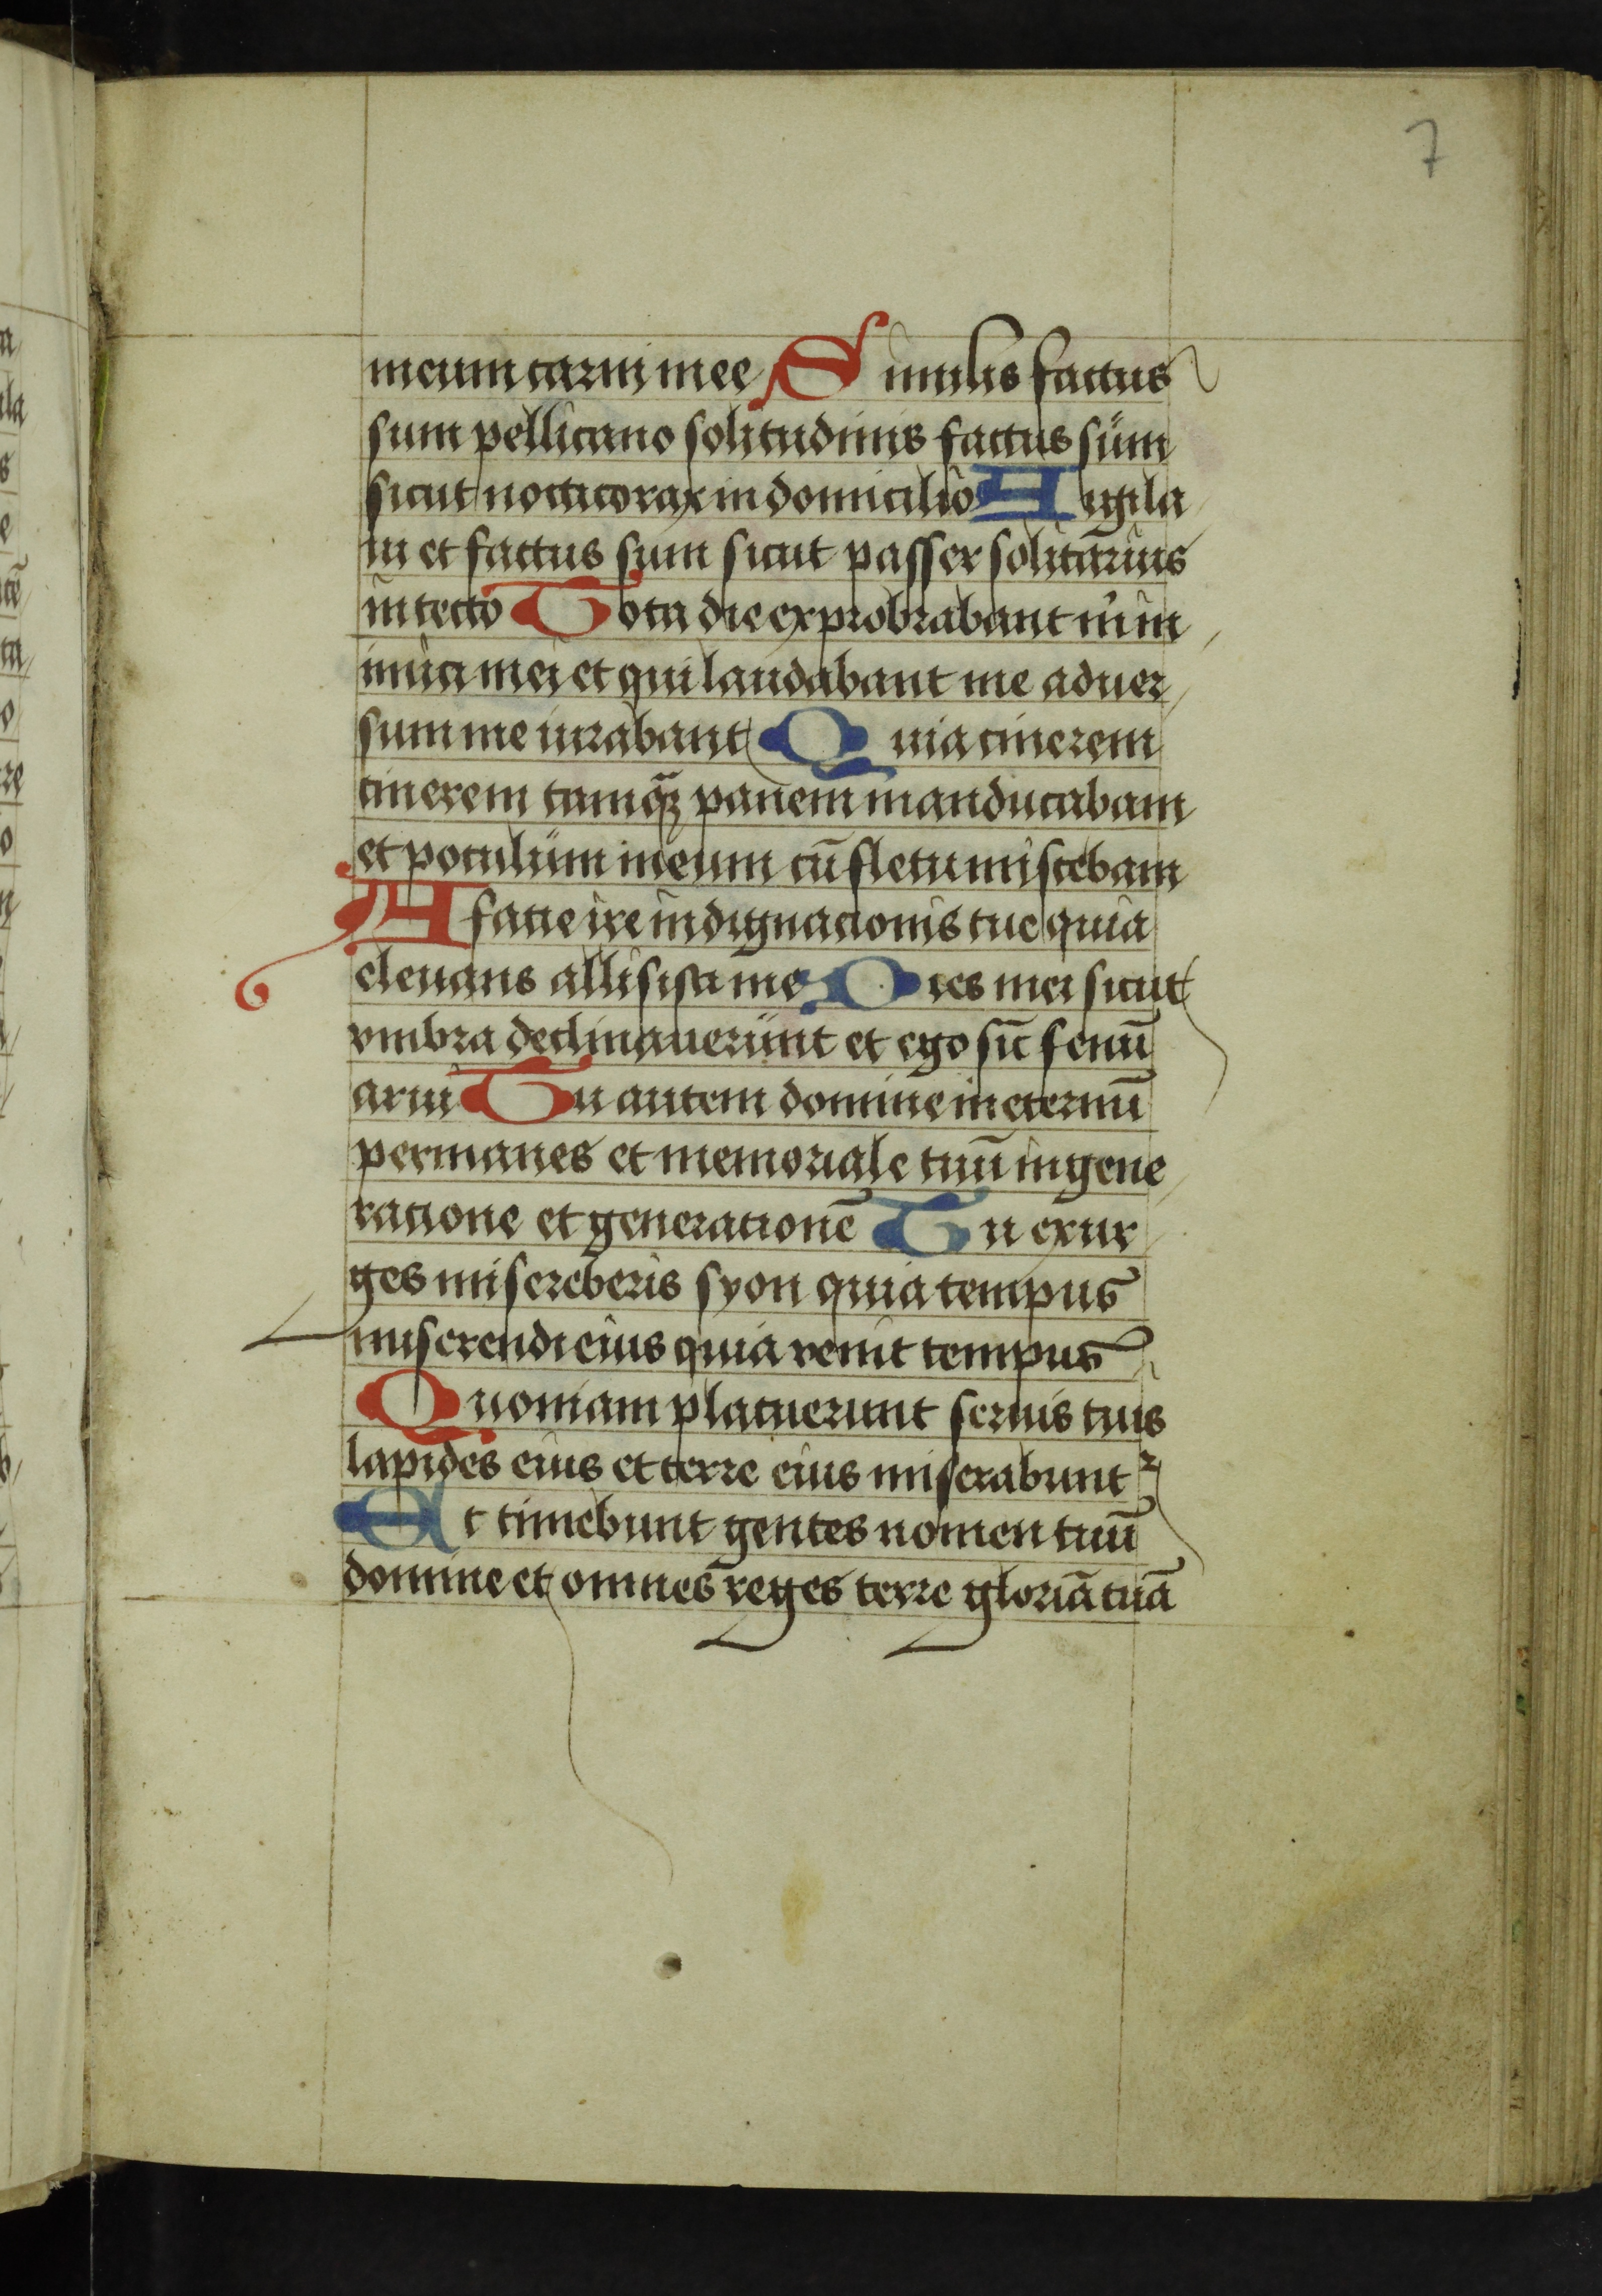 7
meum carni mee Similis factus
sum pellicano solitudinis factus sum
sicut nocticorax in domicilio Aigila
ui et factus sum sicut passer solitarius
in tecto Tota die exprobrabant m in
imici mei et qui laudabant me aduer
sum me iurabant Quia cinerem
cinerem tamqȝ panem manducabam
et poculum meum cū fletu miscebam
A facie ire indignacionis tue quia
eleuans allisisti me Dies mei sicut
vmbra declinauerunt et ego sūt fenū
arui Tu autem domine in eternū
permanes et memoriale tuū in gene
ratione et generationē Tu exur
ges misereberis syon quia tempus
miserendi eius quia venit tempus
Quoniam placuerunt seruis tuis
lapides eius et terre eius miserabunt᷑
Et timebunt gentes nomen tuū
domine et omnes reges terre gloriā tuā